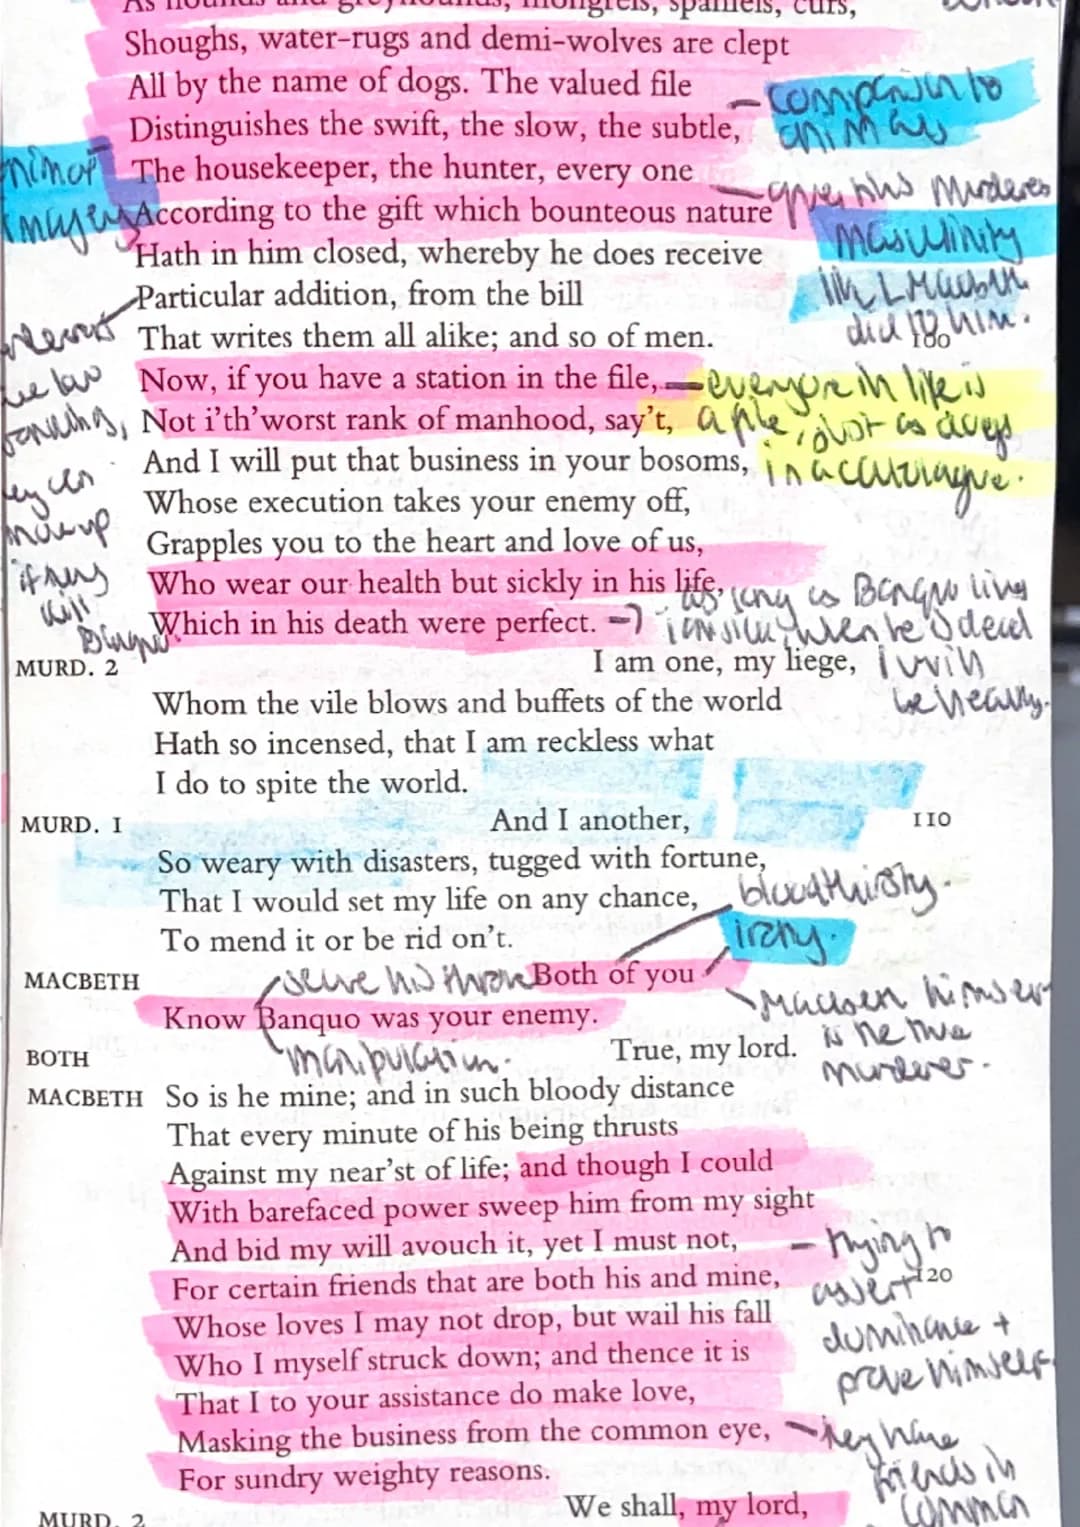 As hounds and greyhounds, mongrels, spaniels, curs,
Shoughs, water-rugs and demi-wolves are clept
All by the name of dogs. The valued file
– comparison to
Distinguishes the swift, the slow, the subtle,
animals
The housekeeper, the hunter, every one
– murderers
According to the gift which bounteous nature
masculinity
Hath in him closed, whereby he does receive
Particular addition, from the bill
like L Macbeth
That writes them all alike; and so of men.
did to him.
100
Now, if you have a station in the file, – everyone in life is
Not i'th'worst rank of manhood, say't, a file, just as dogs
And I will put that business in your bosoms, in a catalogue.
Whose execution takes your enemy off,
Grapples you to the heart and love of us,
Who wear our health but sickly in his life,
as long as Banquo lives
Which in his death were perfect. → I am sickly, when he's dead
if they
kill
Banquo
MURD. 2 I am one, my liege, I will
Whom the vile blows and buffets of the world be healthy.
Hath so incensed, that I am reckless what
I do to spite the world.
MURD. 1 And I another, 110
So weary with disasters, tugged with fortune,
That I would set my life on any chance, bloodthirsty.
To mend it or be rid on't. irony.
MACBETH his throne Both of you
Know Banquo was your enemy. Macbeth himself
is the true
BOTH manipulation. True, my lord. murderer.
MACBETH So is he mine; and in such bloody distance
That every minute of his being thrusts
Against my near'st of life; and though I could
With barefaced power sweep him from my sight
And bid my will avouch it, yet I must not, – trying to
For certain friends that are both his and mine, assert 120
Whose loves I may not drop, but wail his fall dominance +
Who I myself struck down; and thence it is prove himself
That I to your assistance do make love,
Masking the business from the common eye, – they have
For sundry weighty reasons. friends in
We shall, my lord, common
MURD. 2